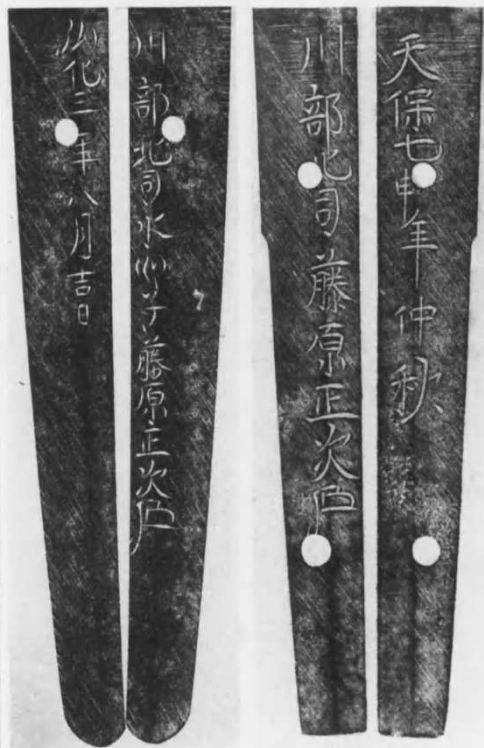 天保七申年仲秋
川部北司藤原正次
川部北司水心子藤原正次
弘化三年八月吉日